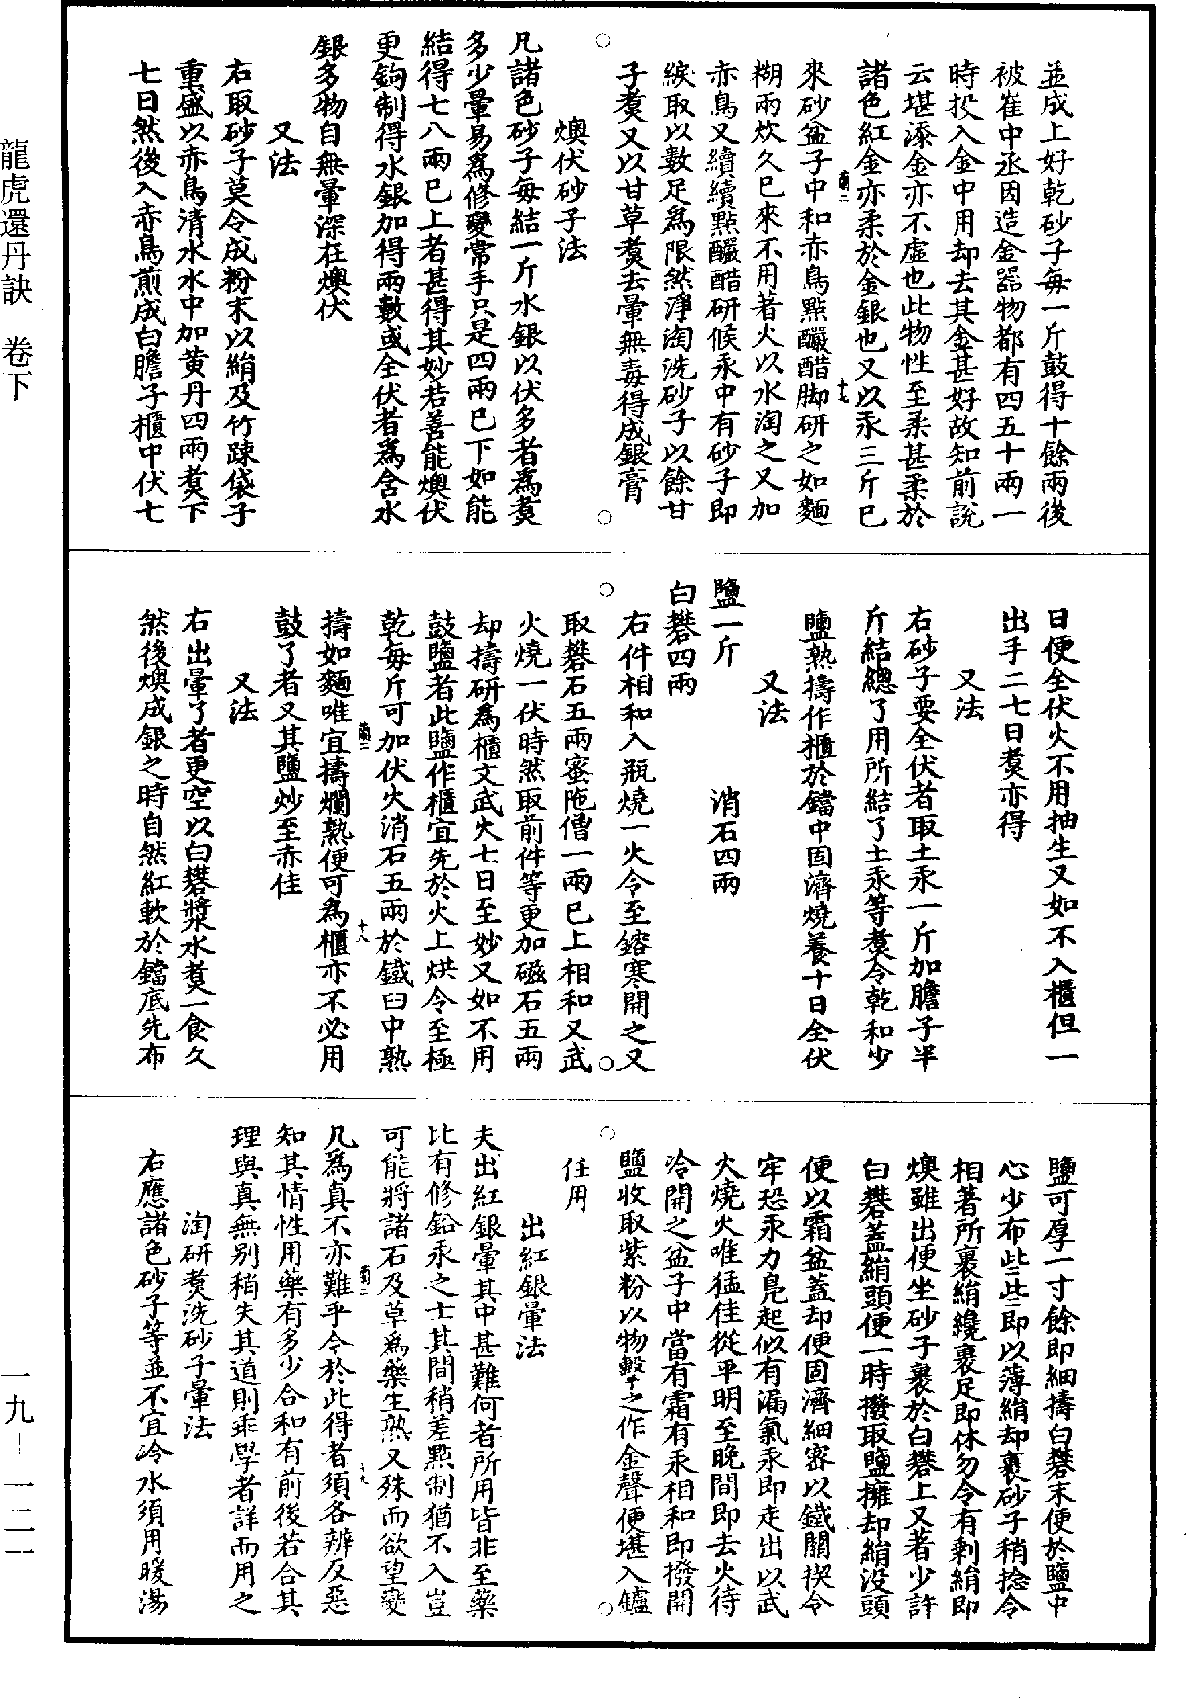 龍虎還丹訣 卷下
一九－一二一
並成上好乾砂子每一斤鼓得十餘兩後
被崔中丞因造金器物都有四五十兩一
時投入金中用却去其金甚好故知前說
云堪添金亦不虛也此物性至柔甚柔於
諸色紅金亦柔於金銀也又以汞三斤已
來砂盆子中和赤鳥點釅醋脚研之如麵
糊兩炊久已來不用著火以水淘之又加
赤鳥又續續點釅醋研候汞中有砂子即
綟取以數足為限然淨淘洗砂子以餘甘
子煑又以甘草煑去暈無毒得成銀膏
燠伏砂子法
凡諸色砂子每結一斤水銀以伏多者為煑
多少暈易為修變常手只是四兩已下如能
結得七八兩已上者甚得其妙若善能燠伏
更鉤制得水銀加得兩數或全伏者為含水
銀多物自無暈深在燠伏
又法
右取砂子莫令成粉末以絹及竹踈袋子
重盛以赤鳥清水水中加黄丹四兩煑下
七日然後入赤鳥煎成白膽子櫃中伏七
日便全伏火不用抽生又如不入櫃但一
出手二七日煑亦得
又法
右砂子要全伏者取土汞一斤加膽子半
斤結總了用所結了土汞等煑令乾和少
鹽熟擣作櫃於鐺中固濟燒養十日全伏
又法
鹽一斤 消石四兩
白礬四兩
右件相和入瓶燒一火令至鎔寒開之又
取礬石五兩蜜陁僧一兩已上相和又武
火燒一伏時然取前件等更加磁石五兩
却擣研為櫃文武火七日至妙又如不用
鼓鹽者此鹽作櫃宜先於火上烘令至極
乾每斤可加伏火消石五兩於鐵臼中熟
擣如麵唯宜擣爛熟便可為櫃亦不必用
鼓了者又其鹽炒至赤佳
又法
右出暈了者更空以白礬漿水煑一食久
然後燠成銀之時自然紅軟於鐺底先布
鹽可厚一寸餘即細擣白礬末便於鹽中
心少布些些即以薄絹却裹砂子稍捻令
相著所裹絹纔裹足即休勿令有剩絹即
燠雖出便坐砂子裹於白礬上又著少許
白礬蓋絹頭便一時撥取鹽擁却絹沒頭
便以霜盆蓋却便固濟細密以鐵關揳令
牢恐汞力鳧起似有漏氣汞即走出以武
火燒火唯猛佳從平明至晚間即去火待
冷開之盆子中當有霜有汞相和即撥開
鹽收取紫粉以物擊之作金聲便堪入鑪
任用
出紅銀暈法
夫出紅銀暈其中甚難何者所用皆非至藥
比有修鉛汞之士其間稍差點制猶不入豈
可能將諸石及草為藥生熟又殊而欲望變
凡為真不亦難乎今於此得者須各辨反惡
知其情性用藥有多少合和有前後若合其
理與真無别稍失其道則乖學者詳而用之
淘研煑洗砂子暈法
右應諸色砂子等並不宜冷水須用暖湯